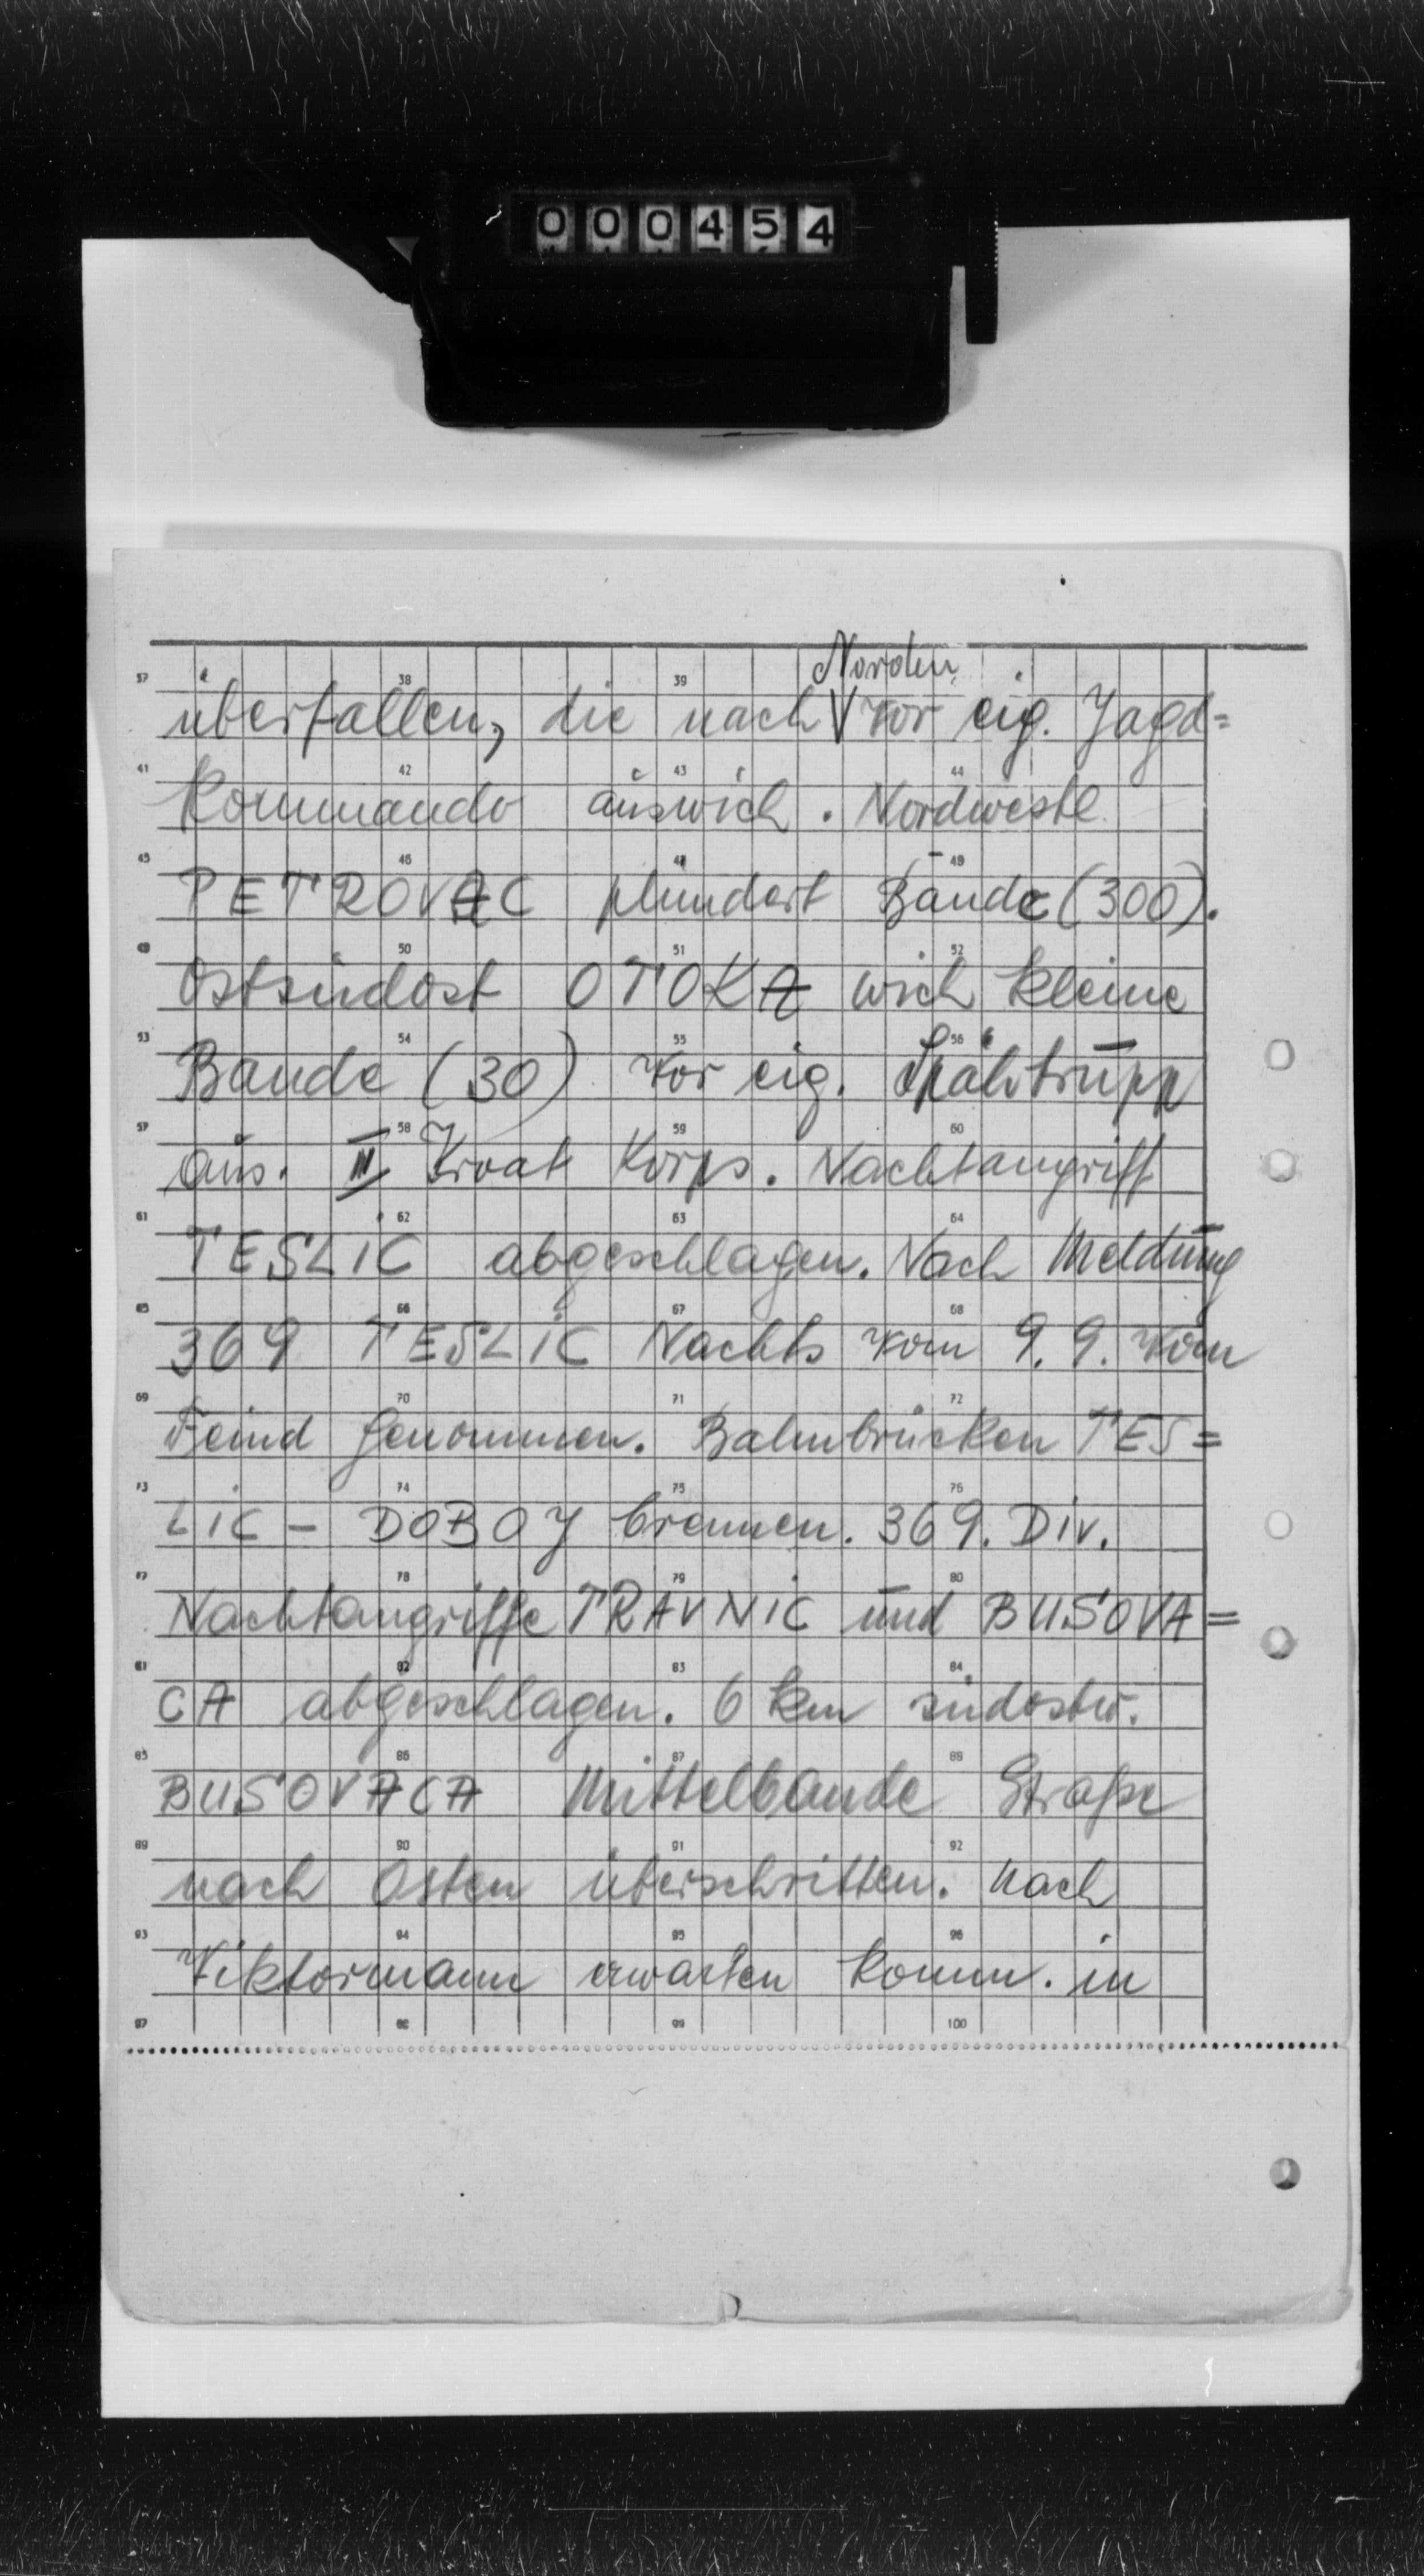 000454
Norden
37 38 39
überfallen, die nach V vor eig. Jagd=
41 42 43 44
kommando auswich. Nordwestl.
45 46 47 48
PETROVAC plündert Bande (300).
49 50 51 52
Ostsüdost OTOKA wich kleine
53 54 55 56
Bande (30) vor eig. Spähtrupp
57 58 59 60
aus. III Kroat Korps. Nachtangriff
61 62 63 64
TESLIC abgeschlagen. Nach Meldung
65 66 67 68
369 TESLIC Nachts vom 9.9. vom
69 70 71 72
Feind genommen. Bahnbrücken TES=
73 74 75 76
LIC - DOBOJ brennen. 369. Div.
77 78 79 80
Nachtangriffe TRAVNIC und BUSOVA=
81 82 83 84
CA abgeschlagen. 6 km südostw.
85 86 87 88
BUSOVACA Mittelbande Straße
89 90 91 92
nach Osten überschritten. Nach
93 94 95 96
Viktormann erwarten komm. in
97 98 99 100